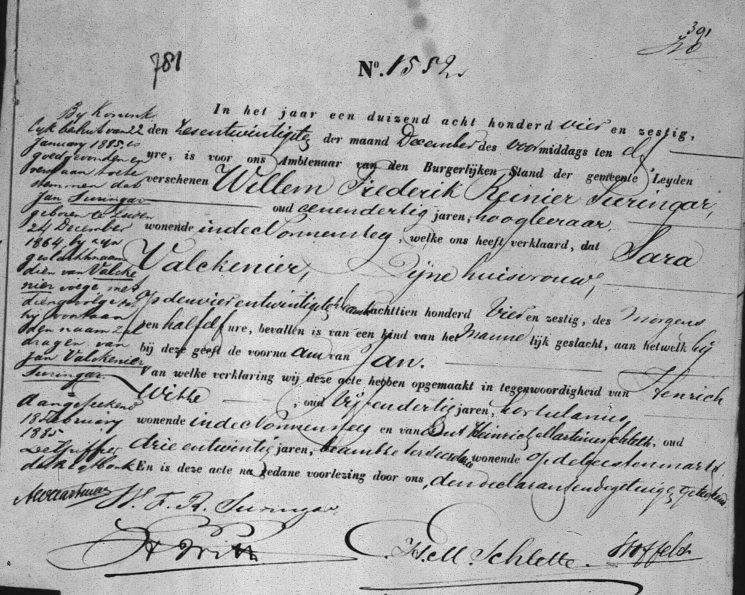 391
781
No. 1552
In het jaar een duizend acht honderd vier en zestig,
den zesentwintigste der maand December des voormiddags ten elf
ure, is voor ons Ambtenaar van den Burgerlijken Stand der gemeente Leyden
verschenen Willem Frederik Reinier Suringar,
oud eenendertig jaren, hoogleeraar
wonende in de Nonnensteeg, welke ons heeft verklaard, dat Sara
Valckenier, zijne huisvrouw,
op den vierentwintigste dezer achttien honderd vier en zestig, des morgens
ten half elf ure, bevallen is van een kind van het mannelijk geslacht, aan hetwelk hij
bij deze geeft de voornaam van Jan.
Van welke verklaring wij deze acte hebben opgemaakt in tegenwoordigheid van Henrich
Witte, oud vijfendertig jaren, hortulanus
wonende in de Nonnensteeg en van Heinrich Martinus Schlette, oud
drieentwintig jaren, wonende op de
En is deze acte na gedane voorlezing door ons, den declarant en de getuigen geteekend
By Konink
lyk besluit van 22
January 1885 is
goedgevonden en
verstaan toete
stemmen dat
Jan Suringar
geboren te Leiden
24 December
1864 by zyn
geslachtnaam
dien van Valcke
nier voege, met
dien gevolge dat
hy voortaan
den naam zal
dragen van
Jan Valckenier
Suringar.
Aangeteekend
18 February
1885
De Griffier
der Rechtbank
W. F. R. Suringar
H Witte
H. M. Schlette.
Stoffels